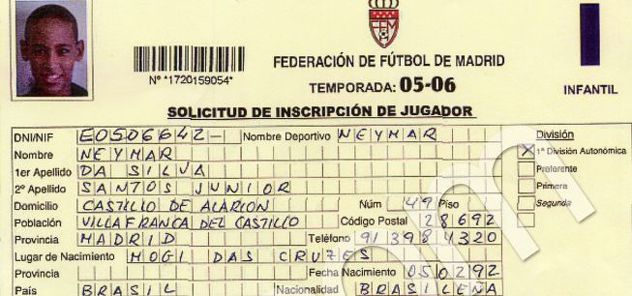 FEDERACIÓN DE FÚTBOL DE MADRID
Nº *1720159054*
TEMPORADA: 05-06
INFANTIL
SOLICITUD DE INSCRIPCIÓN DE JUGADOR
DNI/NIF E0506642- Nombre Deportivo NEYMAR División
Nombre NEYMAR X 1ª División Autonómica
1er Apellido DA SILVA Preferente
2º Apellido SANTOS JUNIOR Primera
Domicilio CASTILLO DE ALARION Núm 49 Piso Segunda
Población VILLAFRANCA DEL CASTILLO Código Postal 28692
Provincia MADRID Teléfono 913984320
Lugar de Nacimiento MOGI DAS CRUZES
Provincia Fecha Nacimiento 050292
País BRASIL Nacionalidad BRASILEÑA